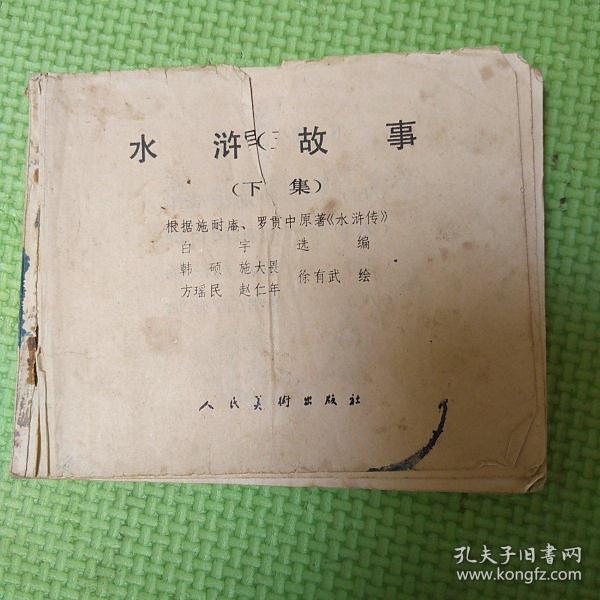 水浒故事
（下集）
根据施耐庵、罗贯中原著《水浒传》
白宇选编
韩硕 施大畏
方瑶民 赵仁年 徐有武 绘
人民美術出版社
孔夫子旧書网
www.kongfz.com